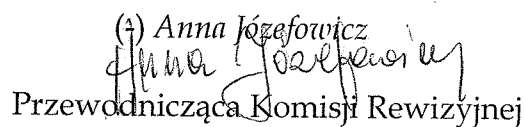 (-) Anna Józefowicz
Anna Józefowicz
Przewodnicząca Komisji Rewizyjnej